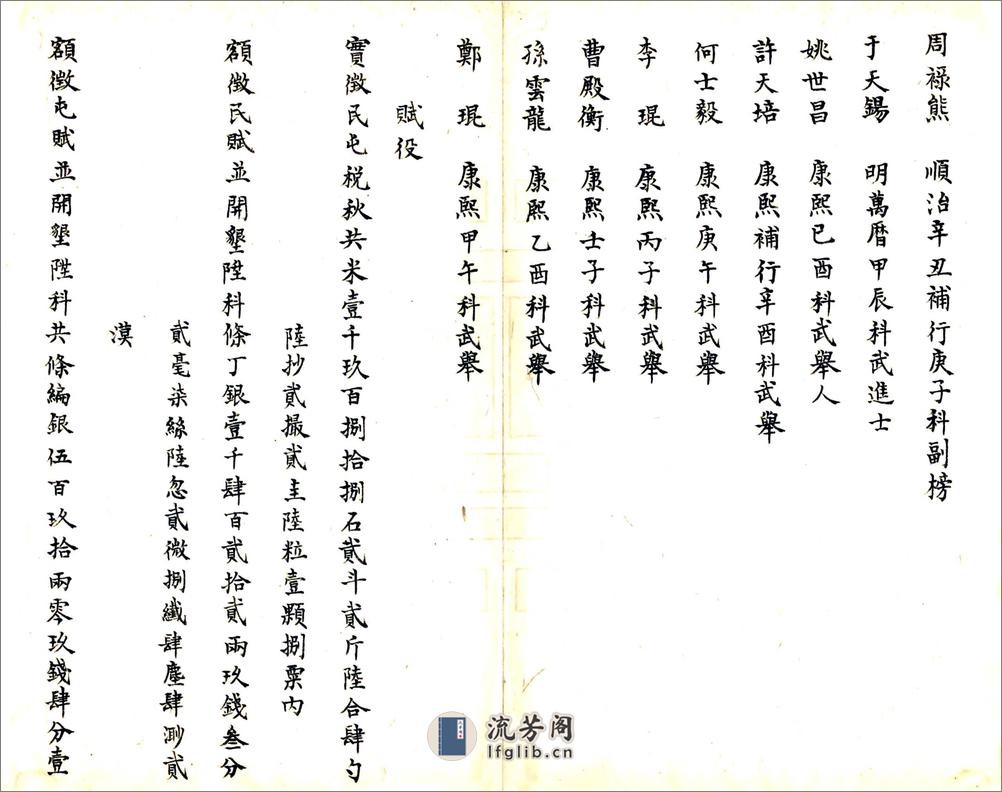 周祿熊　順治辛丑補行庚子科副榜
于天錫　明萬曆甲辰科武進士
姚世昌　康熙已酉科武舉人
許天培　康熙補行辛酉科武舉
何士毅　康熙庚午科武舉
李　琨　康熙丙子科武舉
曹殿衡　康熙壬子科武舉
孫雲龍　康熙乙酉科武舉
鄭　琨　康熙甲午科武舉
賦役
實徵民屯税秋共米壹千玖百捌拾捌石貳斗貳斤陸合肆勺
陸抄貳撮貳圭陸粒壹顆捌粟內
額徵民賦並開墾陞科條丁銀壹千肆百貳拾貳兩玖錢叁分
貳毫柒絲陸忽貳微捌纖肆塵肆渺貳
漠
額徵屯賦並開墾陞科共條編銀伍百玖拾兩零玖錢肆分壹
流芳阁
lfglib.cn